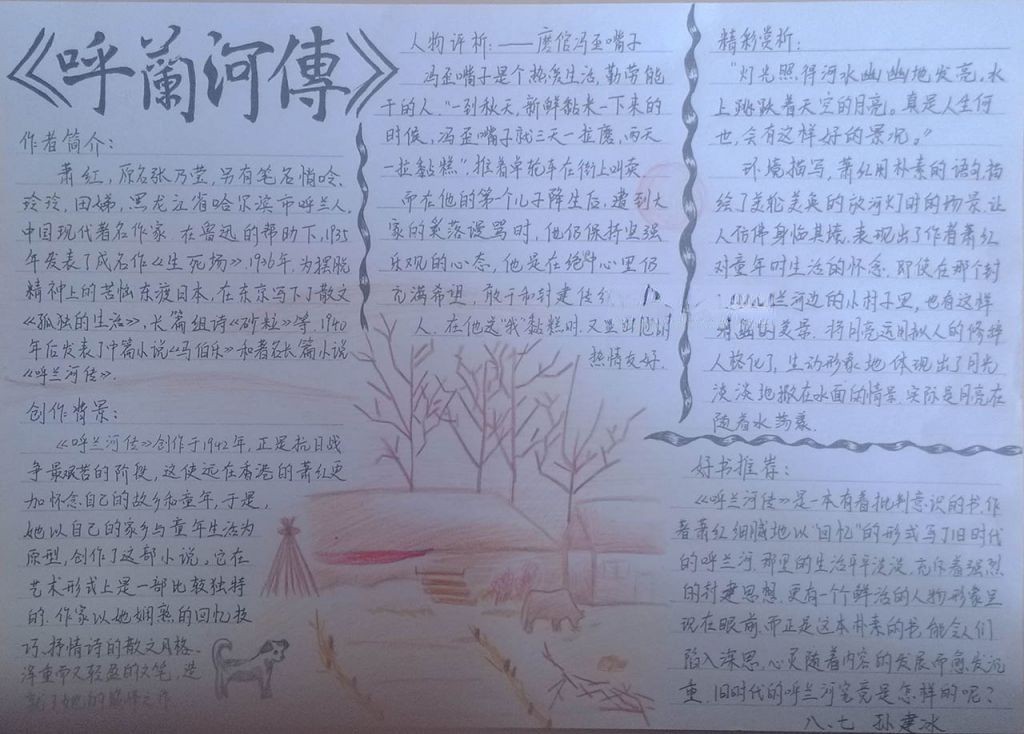 《呼蘭河傳》
作者简介：
萧红，原名张乃莹，另有笔名悄吟、
玲玲，田娣，黑龙江省哈尔滨市呼兰人，
中国现代著名作家，在鲁迅的帮助下，1935
年发表了成名作《生死场》。1936年，为摆脱
精神上的苦恼东渡日本，在东京写下了散文
《孤独的生活》，长篇组诗《砂粒》等。1940
年后发表了中篇小说《马伯乐》和著名长篇小说
《呼兰河传》。
创作背景：
《呼兰河传》创作于1942年，正是抗日战
争最艰苦的阶段，这使远在香港的萧红更
加怀念自己的故乡和童年，于是，
她以自己的家乡与童年生活为
原型，创作了这部小说。它在
艺术形式上是一部比较独特
的，作家以她娴熟的回忆技
巧、抒情诗的散文风格、
浑重而又轻盈的文笔，造
就了她的巅峰之作
人物评析：——磨倌冯歪嘴子
冯歪嘴子是个热爱生活，勤劳能
干的人。"一到秋天，新鲜黏米一下来的
时候，冯歪嘴子就三天一拉磨，两天
一拉黏糕"推着单轮车在街上叫卖。
而在他的第一个儿子降生后，遭到大
家的奚落谩骂时，他仍保持坚强
乐观的心态，他是在绝中心里仍
充满希望，敢于和封建传
人，在他送"我"黏糕时，又显出他的
热情友好。
精彩赏析：
"灯光照得河水幽幽地发亮。水
上跳跃着天空的月亮。真是人生何
也，会有这样好的景况。"
环境描写，萧红用朴素的语句描
绘了美轮美奂的放河灯时的场景，让
人仿佛身临其境，表现出了作者萧红
对童年时生活的怀念，即使在那个封
兰河边的小村子里，也有这样
的美景。将月亮运用拟人的修辞
人格化了，生动形象地体现出了月光
淡淡地撒在水面的情景，实际是月亮在
随着水荡漾。
好书推荐：
《呼兰河传》是一本有着批判意识的书，作
者萧红细腻地以"回忆"的形式写了旧时代
的呼兰河，那里的生活平平淡淡，充斥着强烈
的封建思想，更有一个个鲜活的人物形象呈
现在眼前，而正是这本朴素的书，能令人们
陷入深思，心灵随着内容的发展而愈发沉
重，旧时代的呼兰河究竟是怎样的呢？
八、七 孙建冰